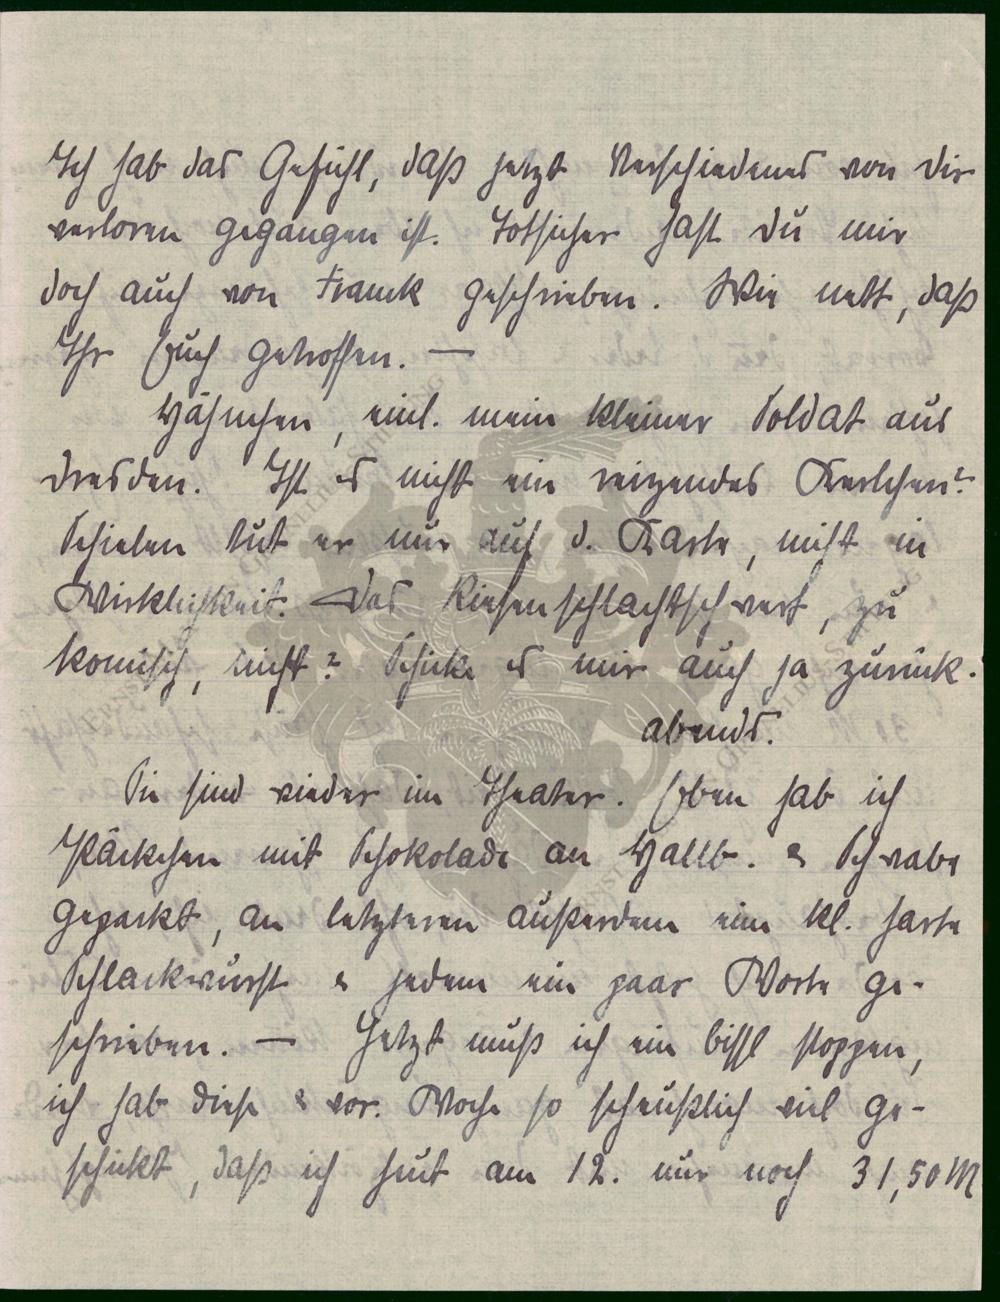 Ich hab das Gefühl, daß jetzt Verschiedenes von Dir
verloren gegangen ist. Totsicher hast Du mir
doch auch von Franck geschrieben. Wie nett, daß
Ihr Euch getroffen. —
Hähnchen, einl. mein kleiner Soldat aus
Dresden. Ist es nicht ein reizendes Kerlchen?
Schielen tut er nur auf d. Karte, nicht in
Wirklichkeit. Das Riesenschlachtschwert, zu
komisch, nicht? Schicke es mir auch ja zurück.
abends.
Sie sind wieder im Theater. Eben hab ich
Päckchen mit Schokolade an Hallb. & Schwabe
gepackt, an letzteren außerdem eine kl. harte
Schlackwurst & jedem ein paar Worte ge-
schrieben. — Jetzt muß ich ein bissl stoppen,
ich hab diese & vor. Woche so scheußlich viel ge-
schickt, daß ich heut am 12. nur noch 31,50 M